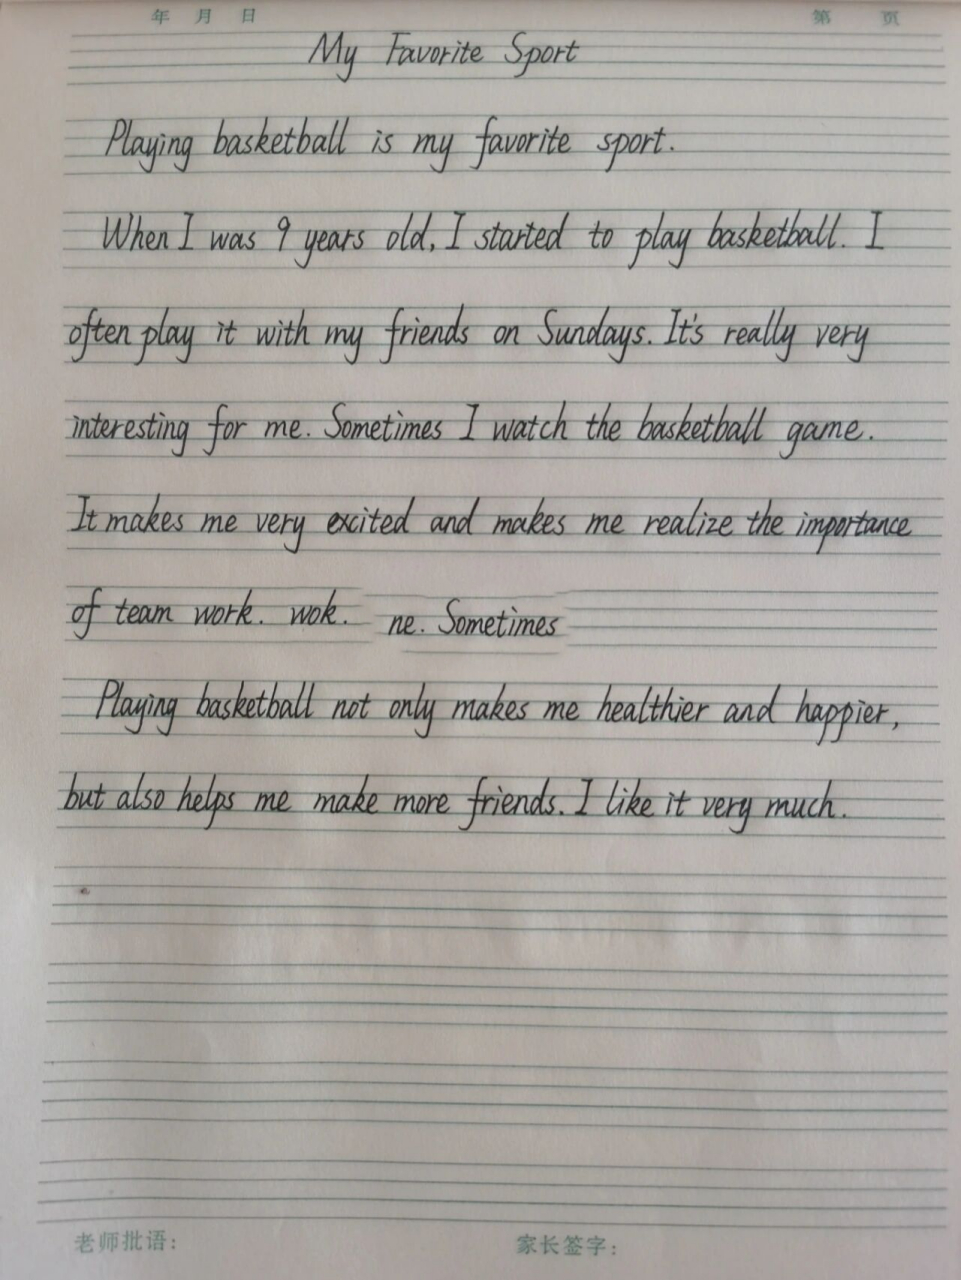 年 月 日 第 页
My Favorite Sport
Playing basketball is my favorite sport.
When I was 9 years old, I started to play basketball. I
often play it with my friends on Sundays. It's really very
interesting for me. Sometimes I watch the basketball game.
It makes me very excited and makes me realize the importance
of team work. wok. ne. Sometimes
Playing basketball not only makes me healthier and happier,
but also helps me make more friends. I like it very much.
老师批语: 家长签字: